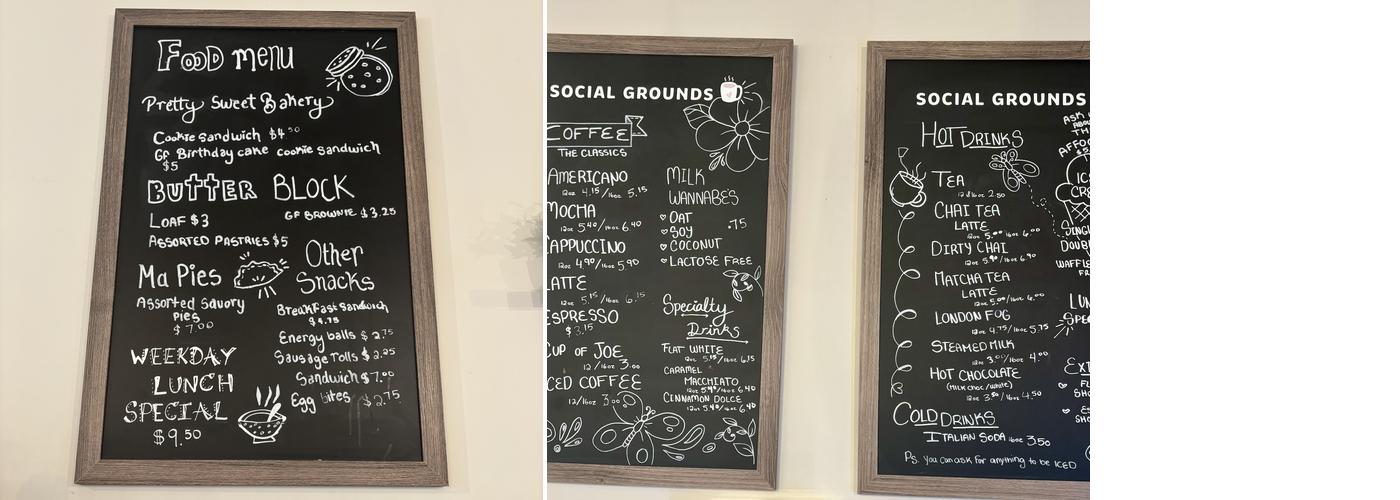 Food menu
Pretty Sweet Bakery
Cookie Sandwich $4.50
GF Birthday cake cookie sandwich
$5
BUTTER BLOCK
LOAF $3
GF BROWNIE $3.25
ASSORTED PASTRIES $5
Ma Pies
Assorted Savory
Pies
$7.00
Other
Snacks
Breakfast Sandwich
$4.75
Energy balls $2.75
Sausage rolls $2.25
Sandwich $7.00
Egg bites $2.75
WEEKDAY
LUNCH
SPECIAL
$9.50
SOCIAL GROUNDS
COFFEE
THE CLASSICS
AMERICANO
12oz 4.15/16oz 5.15
MOCHA
12oz 5.40/16oz 6.40
CAPPUCCINO
12oz 4.90/16oz 5.90
LATTE
12oz 5.15/16oz 6.15
ESPRESSO
$3.15
CUP OF JOE
12/16oz 3.00
ICED COFFEE
12/16oz 3.00
MILK
WANNABES
OAT
SOY .75
COCONUT
LACTOSE FREE
Specialty
Drinks
FLAT WHITE
12oz 5.15/16oz 6.15
CARAMEL
MACCHIATO
12oz 5.40/16oz 6.40
CINNAMON DOLCE
12oz 5.40/16oz 6.40
SOCIAL GROUNDS
HOT DRINKS
TEA
12&16oz 2.50
CHAI TEA
LATTE
12oz 5.00/16oz 6.00
DIRTY CHAI
12oz 5.90/16oz 6.90
MATCHA TEA
LATTE
12oz 5.00/16oz 6.00
LONDON FOG
12oz 4.75/16oz 5.75
STEAMED MILK
12oz 3.00/16oz 4.00
HOT CHOCOLATE
(MILK choc/white)
12oz 3.50/16oz 4.50
COLD DRINKS
ITALIAN SODA 16oz 3.50
Ps. you can ask for anything to be ICED
ASK